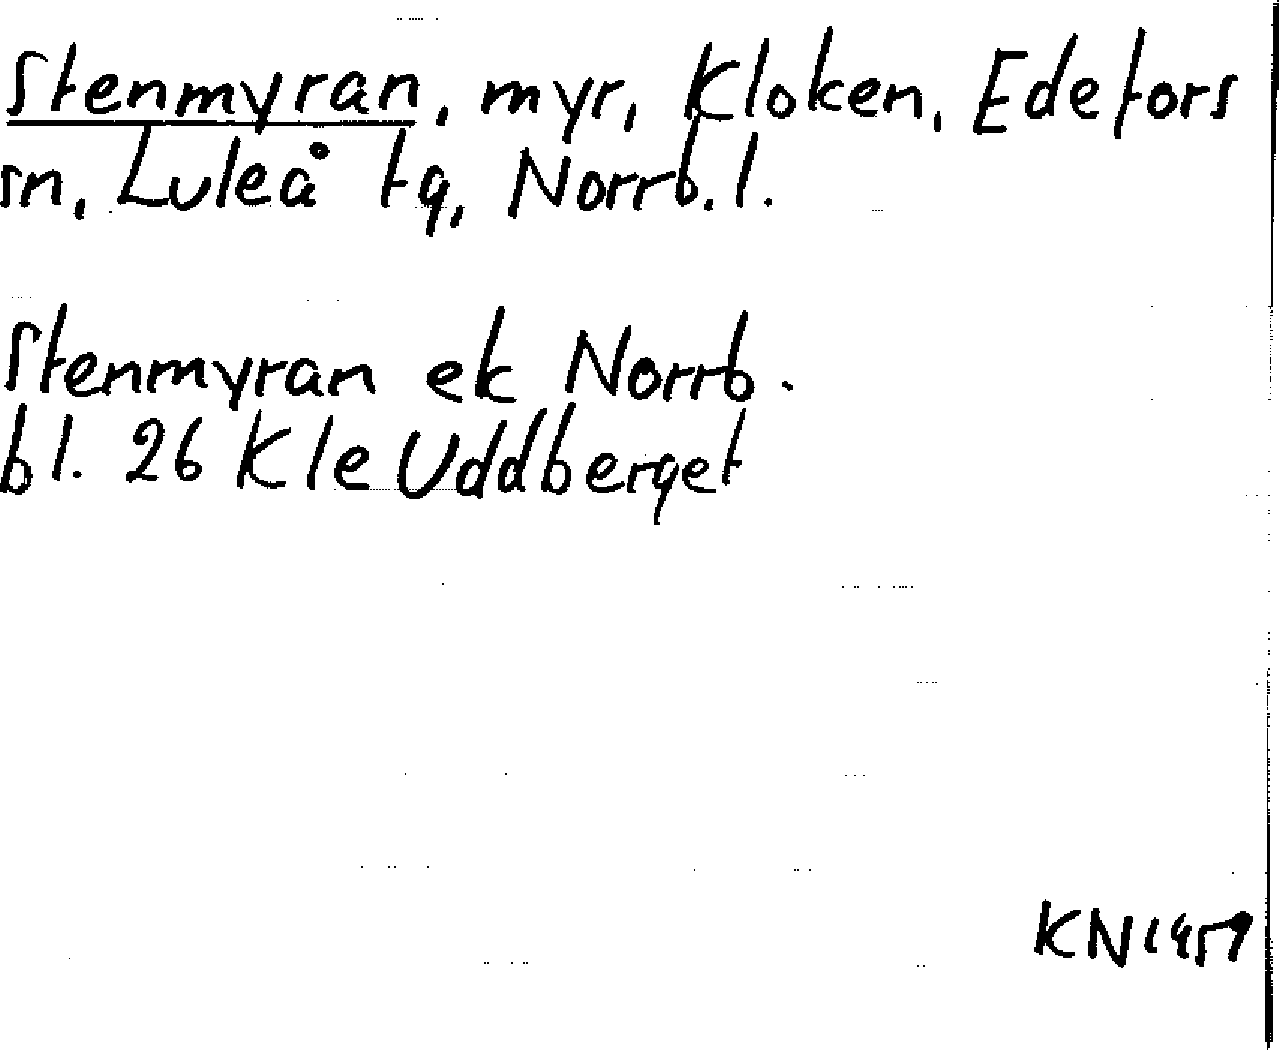 Stenmyran, myr, Kloken, Edefors
sn, Luleå tg, Norrb. l.
Stenmyran ek Norrb.
bl. 26 Kle Uddberget
KN 1959